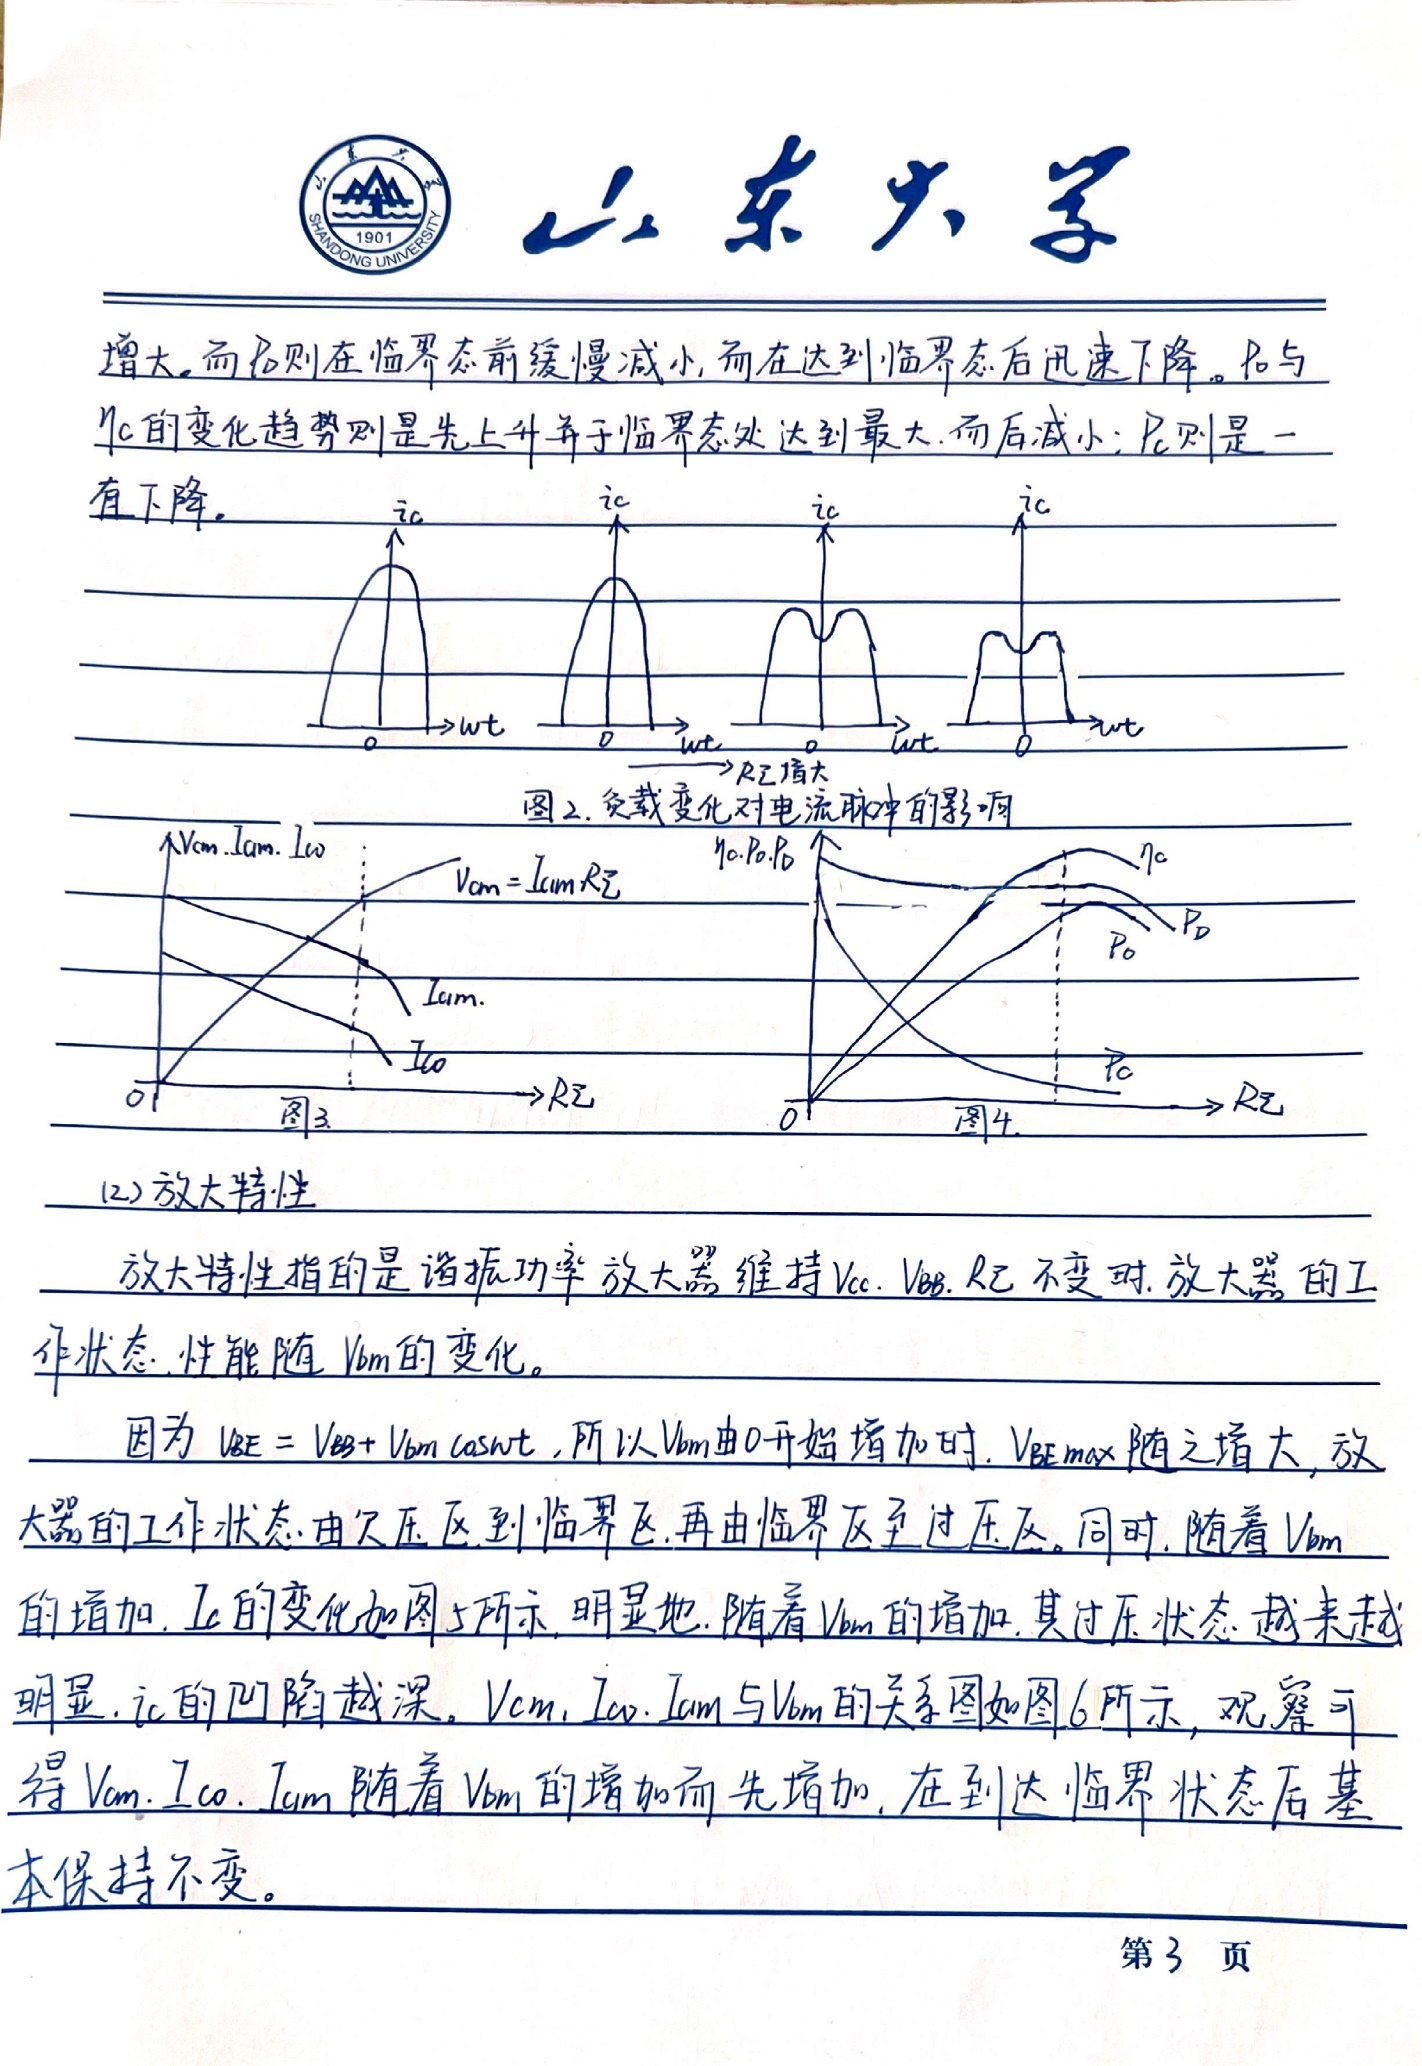 山东大学
SHANDONG UNIVERSITY
1901
山东大学
增大。而P0则在临界态前缓慢减小,而在达到临界态后迅速下降。Po与
ηc的变化趋势则是先上升并于临界态处达到最大.而后减小;Pc则是一
直下降。
ic ic ic ic
0 wt 0 wt 0 wt 0 wt
RΣ增大
图2.负载变化对电流脉冲的影响
Vcm.Icm.Ico
Vcm=IcmRΣ
Icm.
Ico
0 RΣ
图3.
ηc.Po.PD
ηc
PD
Po
Pc
0 RΣ
图4.
(2)放大特性
放大特性指的是谐振功率放大器维持Vcc.VBB.RΣ不变时.放大器的工
作状态.性能随Vbm的变化。
因为VBE=VBB+Vbm coswt,所以Vbm由0开始增加时.VBEmax随之增大,放
大器的工作状态由欠压区到临界区.再由临界区至过压区。同时.随着Vbm
的增加.Ic的变化如图5所示.明显地.随着Vbm的增加.其过压状态越来越
明显.ic的凹陷越深。Vcm.Ico.Icm与Vbm的关系图如图6所示,观察可
得Vcm.Ico.Icm随着Vbm的增加而先增加.在到达临界状态后基
本保持不变。
第3页